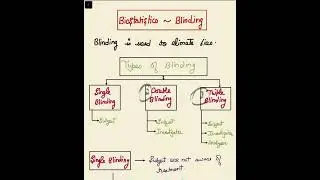 Biostatistics ~ Blinding
Blinding is used to elimate bias.
Types of Blinding
Single Blinding
Double Blinding
Triple Blinding
→ Subject
→ Subject
→ Investigator
→ Subject
→ Investigator
→ Analyzer
Single Blinding → Subject are not aware of
treatment.